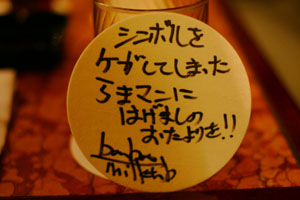 シンボルを
ケガしてしまった
らまマニに
はげましの
おたよりを!!